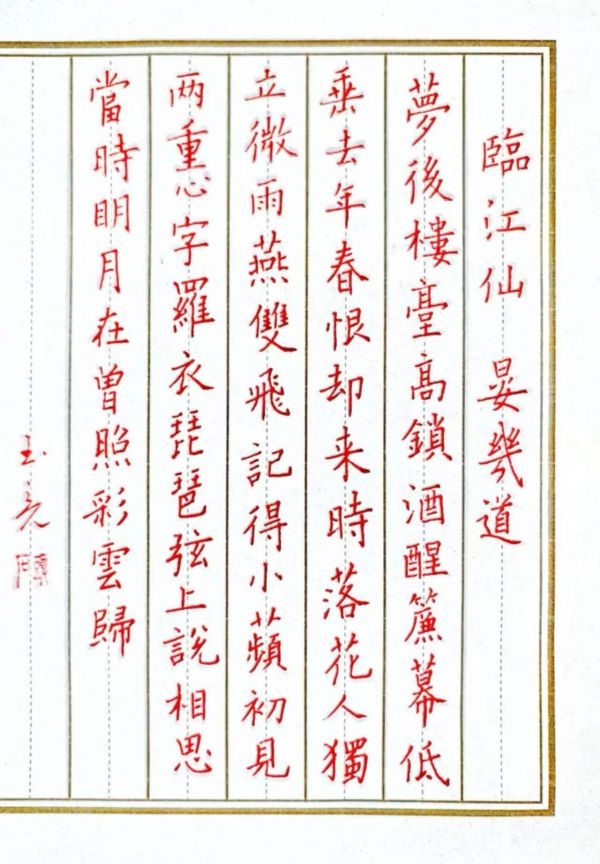 臨江仙 晏幾道
夢後樓臺高鎖酒醒簾幕低
垂去年春恨却来時落花人獨
立微雨燕雙飛記得小蘋初見
两重心字羅衣琵琶弦上說相思
當時明月在曾照彩雲歸